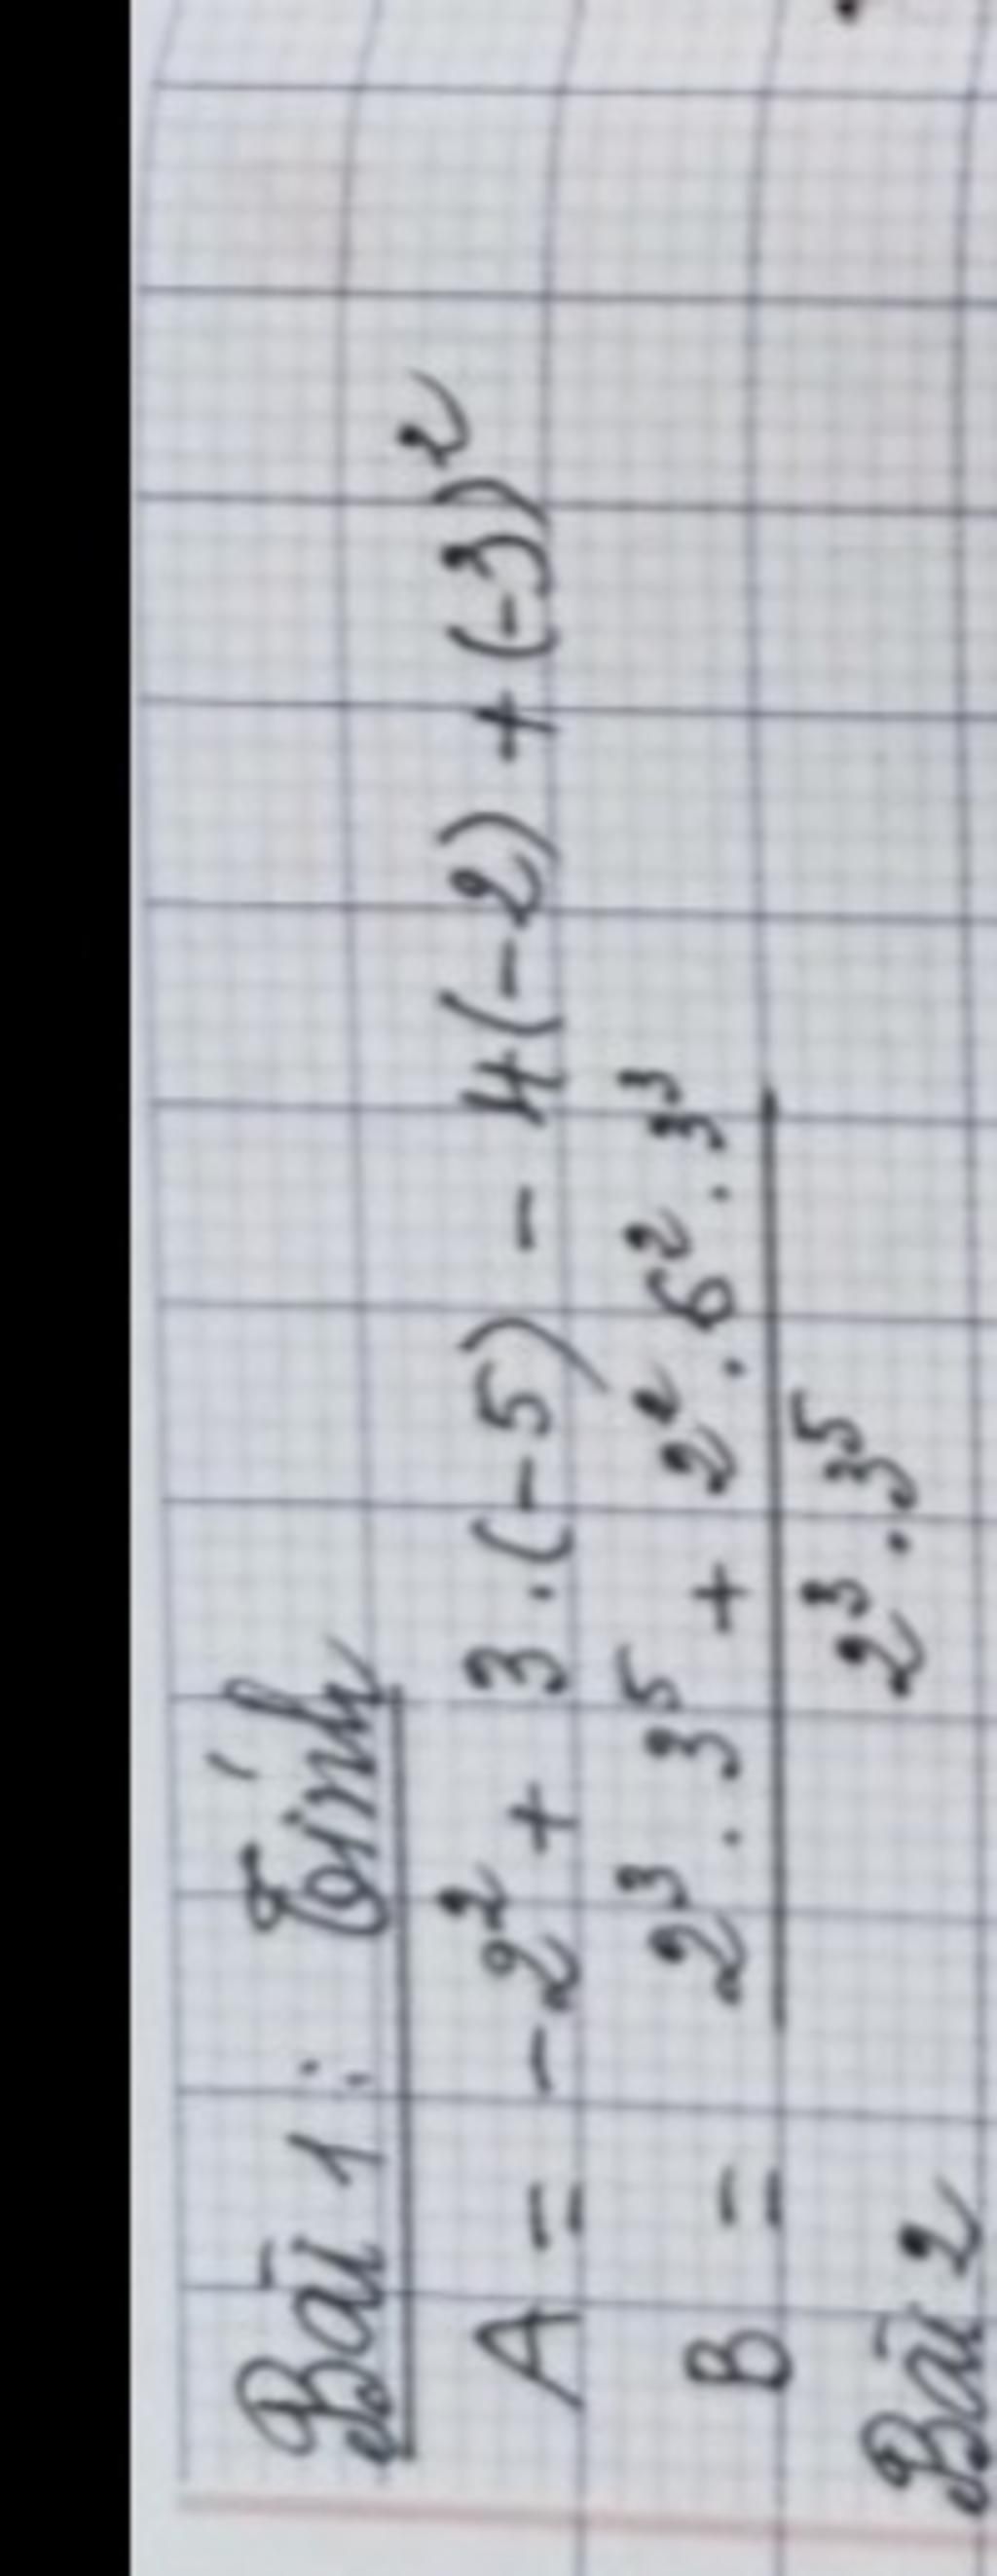 Bài 1: Tính
A = -2² + 3.(-5) - 4(-2) + (-3)²
B = 2³ . 3⁵ + 2² . 6² . 3³
2³ . 3⁵
Bài 2